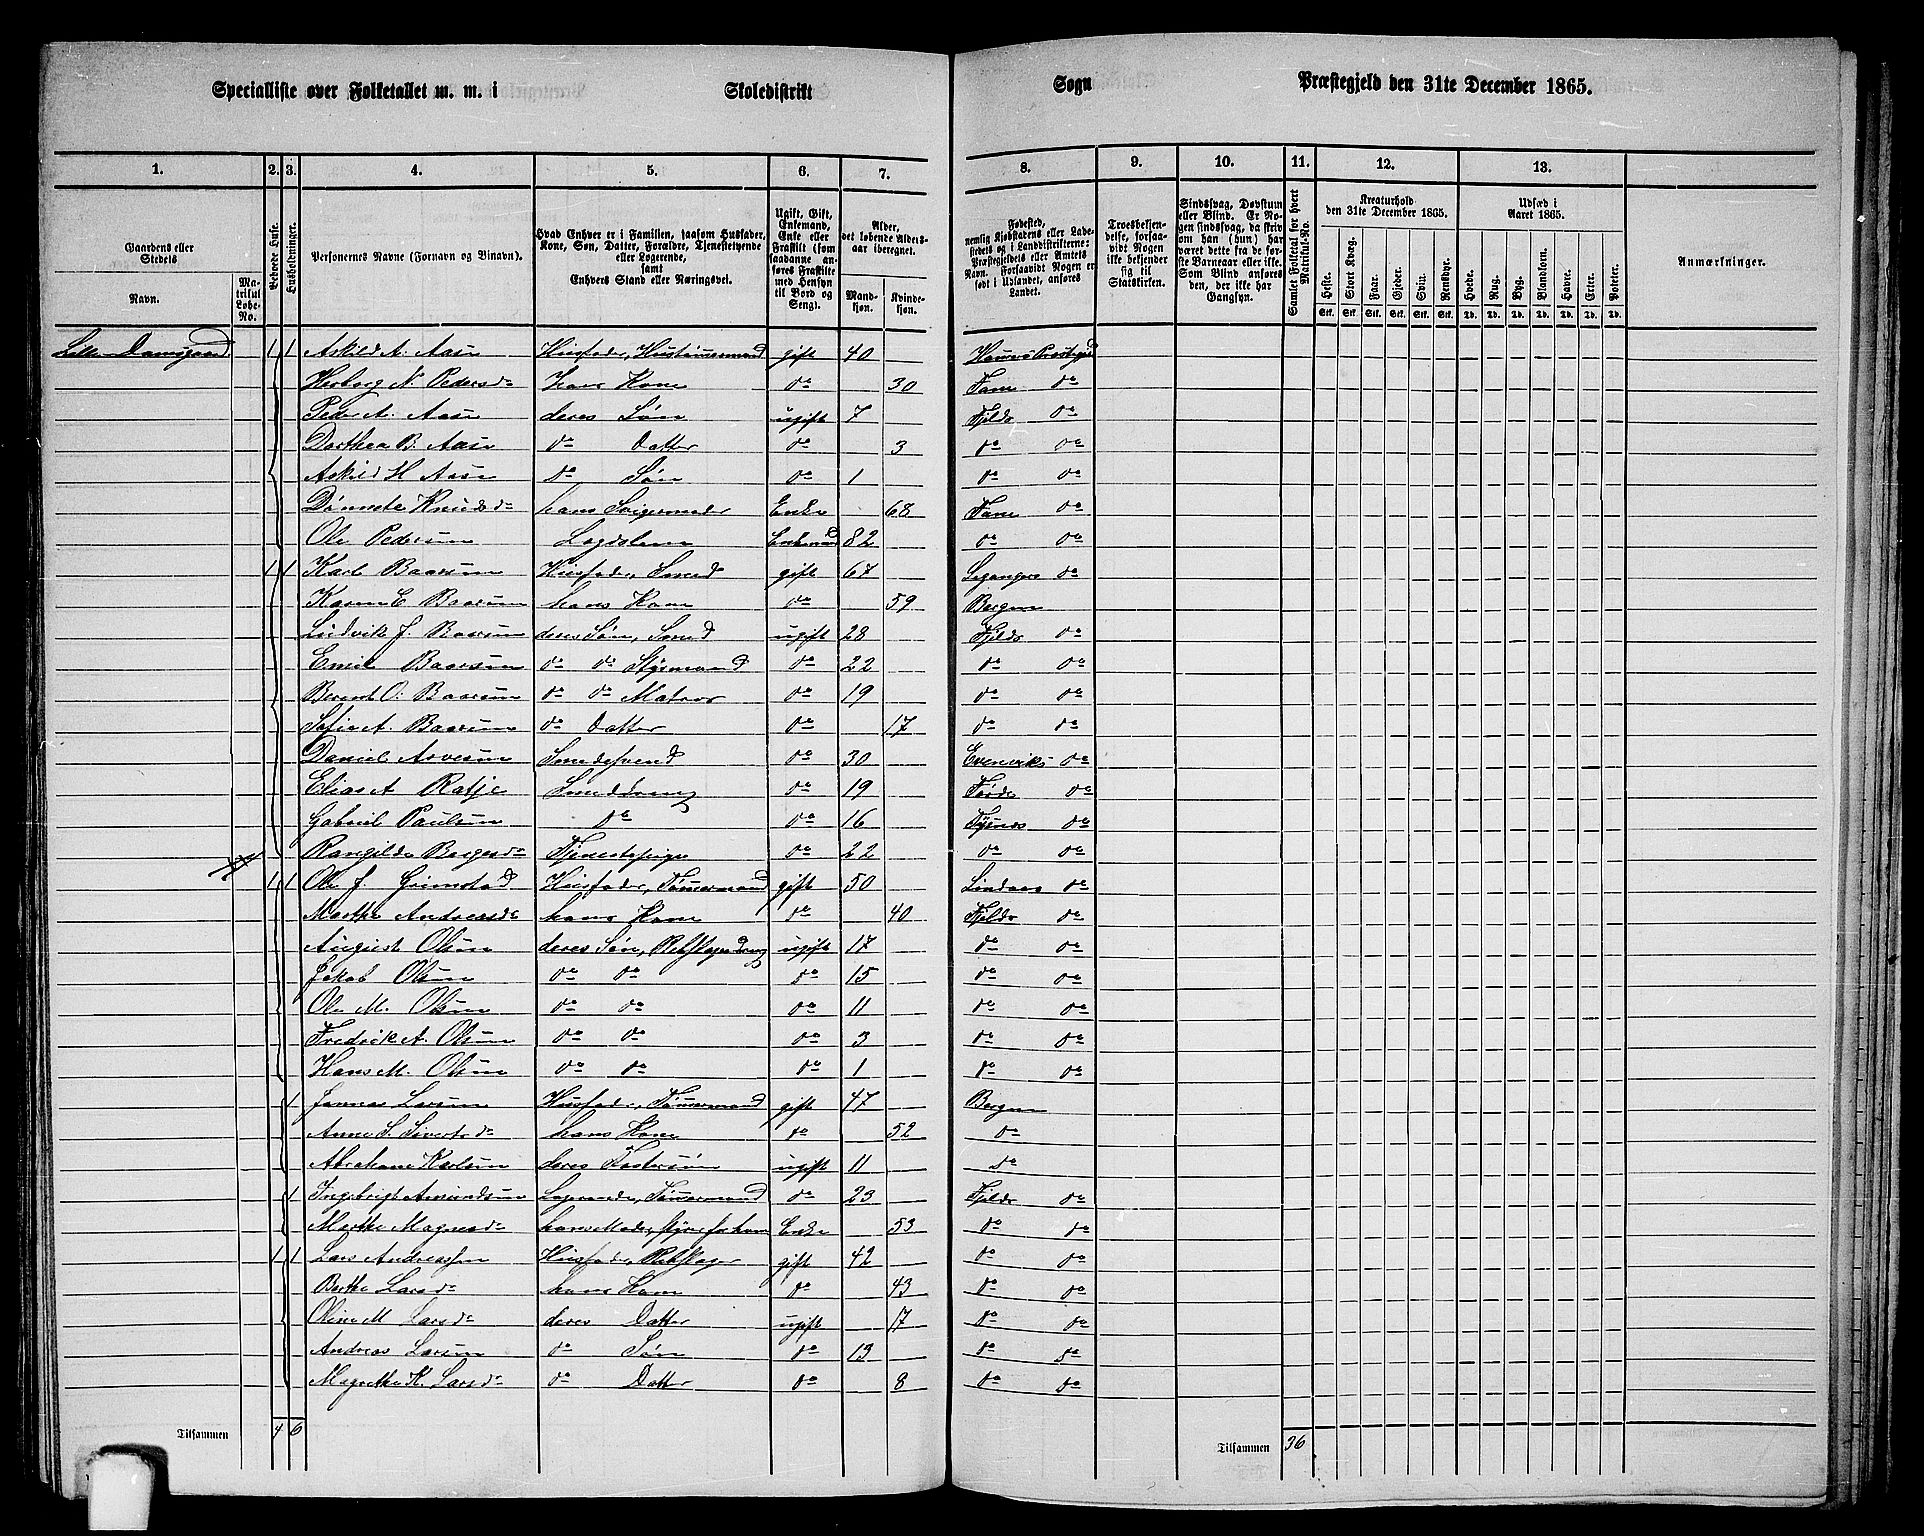 Specialliste over Folketallet m. m. i Skoledistrikt Sogn Præstegjeld den 31te December 1865.
1. 2. 3. 4. 5. 6. 7. 8. 9. 10. 11. 12. 13.
Gaardens eller Stedets Navn. Matrikul Løbe-No. Beboede Huse. Husholdninger. Personernes Navne (Fornavn og Tilnavn).
Hvad Enhver er i Familien, saasom Husfader, Kone, Søn, Datter, Forældre, Tjenestetyende eller Logerende, samt Enhvers Stand eller Næringsvei.
Ugift, Gift, Enkemand, Enke eller Fraskilt (som saadanne anføres Fraskilte med Hensyn til Bord og Seng).
Alder, det løbende Aldersaar iberegnet. Mandkjøn. Kvindekjøn.
Fødested, nemlig Kjøbstadens eller Ladestedets og i Landdistrikterne: Præstegjeldets eller Amtets Navn. Forsaavidt Nogen er født i Udlandet, anføres Landet.
Troesbekjendelse, forsaavidt Nogen ikke bekjender sig til Statskirken.
Sindssvag, Døvstum eller Blind. Er Nogen sindssvag, da skriv om han (hun) har været dette fra de første Barneaar eller ikke. Som Blind anføres den, der ikke har Gangsyn.
Samlet Folketal for hvert Matrikul-No.
Kreaturhold den 31te December 1865. Heste. Stort Kvæg. Faar. Gjeder. Sviin. Rensdyr.
Udsæd i Aaret 1865. Hvede. Rug. Byg. Blandkorn. Havre. Erter. Poteter.
Anmærkninger.
Stk. Stk. Stk. Stk. Stk. Stk. Td. Td. Td. Td. Td. Td. Td.
Lille Damsgaard 1 1 Askild A. Aase Husfader, Hustømmermand gift 40 Hammers Præstegjeld
Herborg N. Pedersd. hans Kone do 30 Fane do
Peder A. Aase deres Søn ugift 7 Fjelds do
Dorthea B. Aase do Datter do 3 do do
Askild H. Aase do Søn do 1 do do
Knudsd. hans Svigermoder Enke 68 Fane do
Ole Pedersen Lægdslem Enkemand 82 do do
1 1 Karl Baarsen Husfader, Smed gift 67 do
Karen E. Baarsen hans Kone do 59 Bergen
Ludvik J. Baarsen deres Søn, Smed ugift 28 Fjelds do
Emil Baarsen do do Styrmand do 22 do do
Berent O. Baarsen do do Matros do 19 do do
Sofie A. Baarsen do Datter do 17 do do
Daniel Arvesen Smedesvend do 30 Evenviks do
Elias A. Smeddreng do 19 Førde do
Gabriel Paulsen do do 16 Tysnæs do
Rangilde Bergesd. Tjenestepige do 22 do do
1 1 Ole J. Grimstad Husfader, Tømmermand gift 50 Lindaas do
Marthe Andreasd. hans Kone do 40 Fjelds do
August Olsen deres Søn, Rebslagerdreng ugift 17 do do
Jakob Olsen do do do 15 do do
Ole M. Olsen do do do 11 do do
Fredrik A. Olsen do do do 3 do do
Hans M. Olsen do do do 1 do do
1 Larsen Husfader, Tømmermand gift 47 Bergen
Anne S. Sivertsd. hans Kone do 52 do
Karlsen deres Fostersøn ugift 11 do
1 Ingebrigt Amundsen Logerende, Tømmermand do 23 Fjelds do
Marthe Magnesd. hans Moder, for ham Enke 53 do do
1 1 Lars Andreassen Husfader, Rebslager gift 42 do do
Berthe Larsd. hans Kone do 43 do do
Oline M. Larsd. deres Datter ugift 17 do do
Andreas Larsen do Søn do 13 do do
Magrethe K. Larsd. do Datter do 8 do do
Tilsammen 4 6 Tilsammen 36